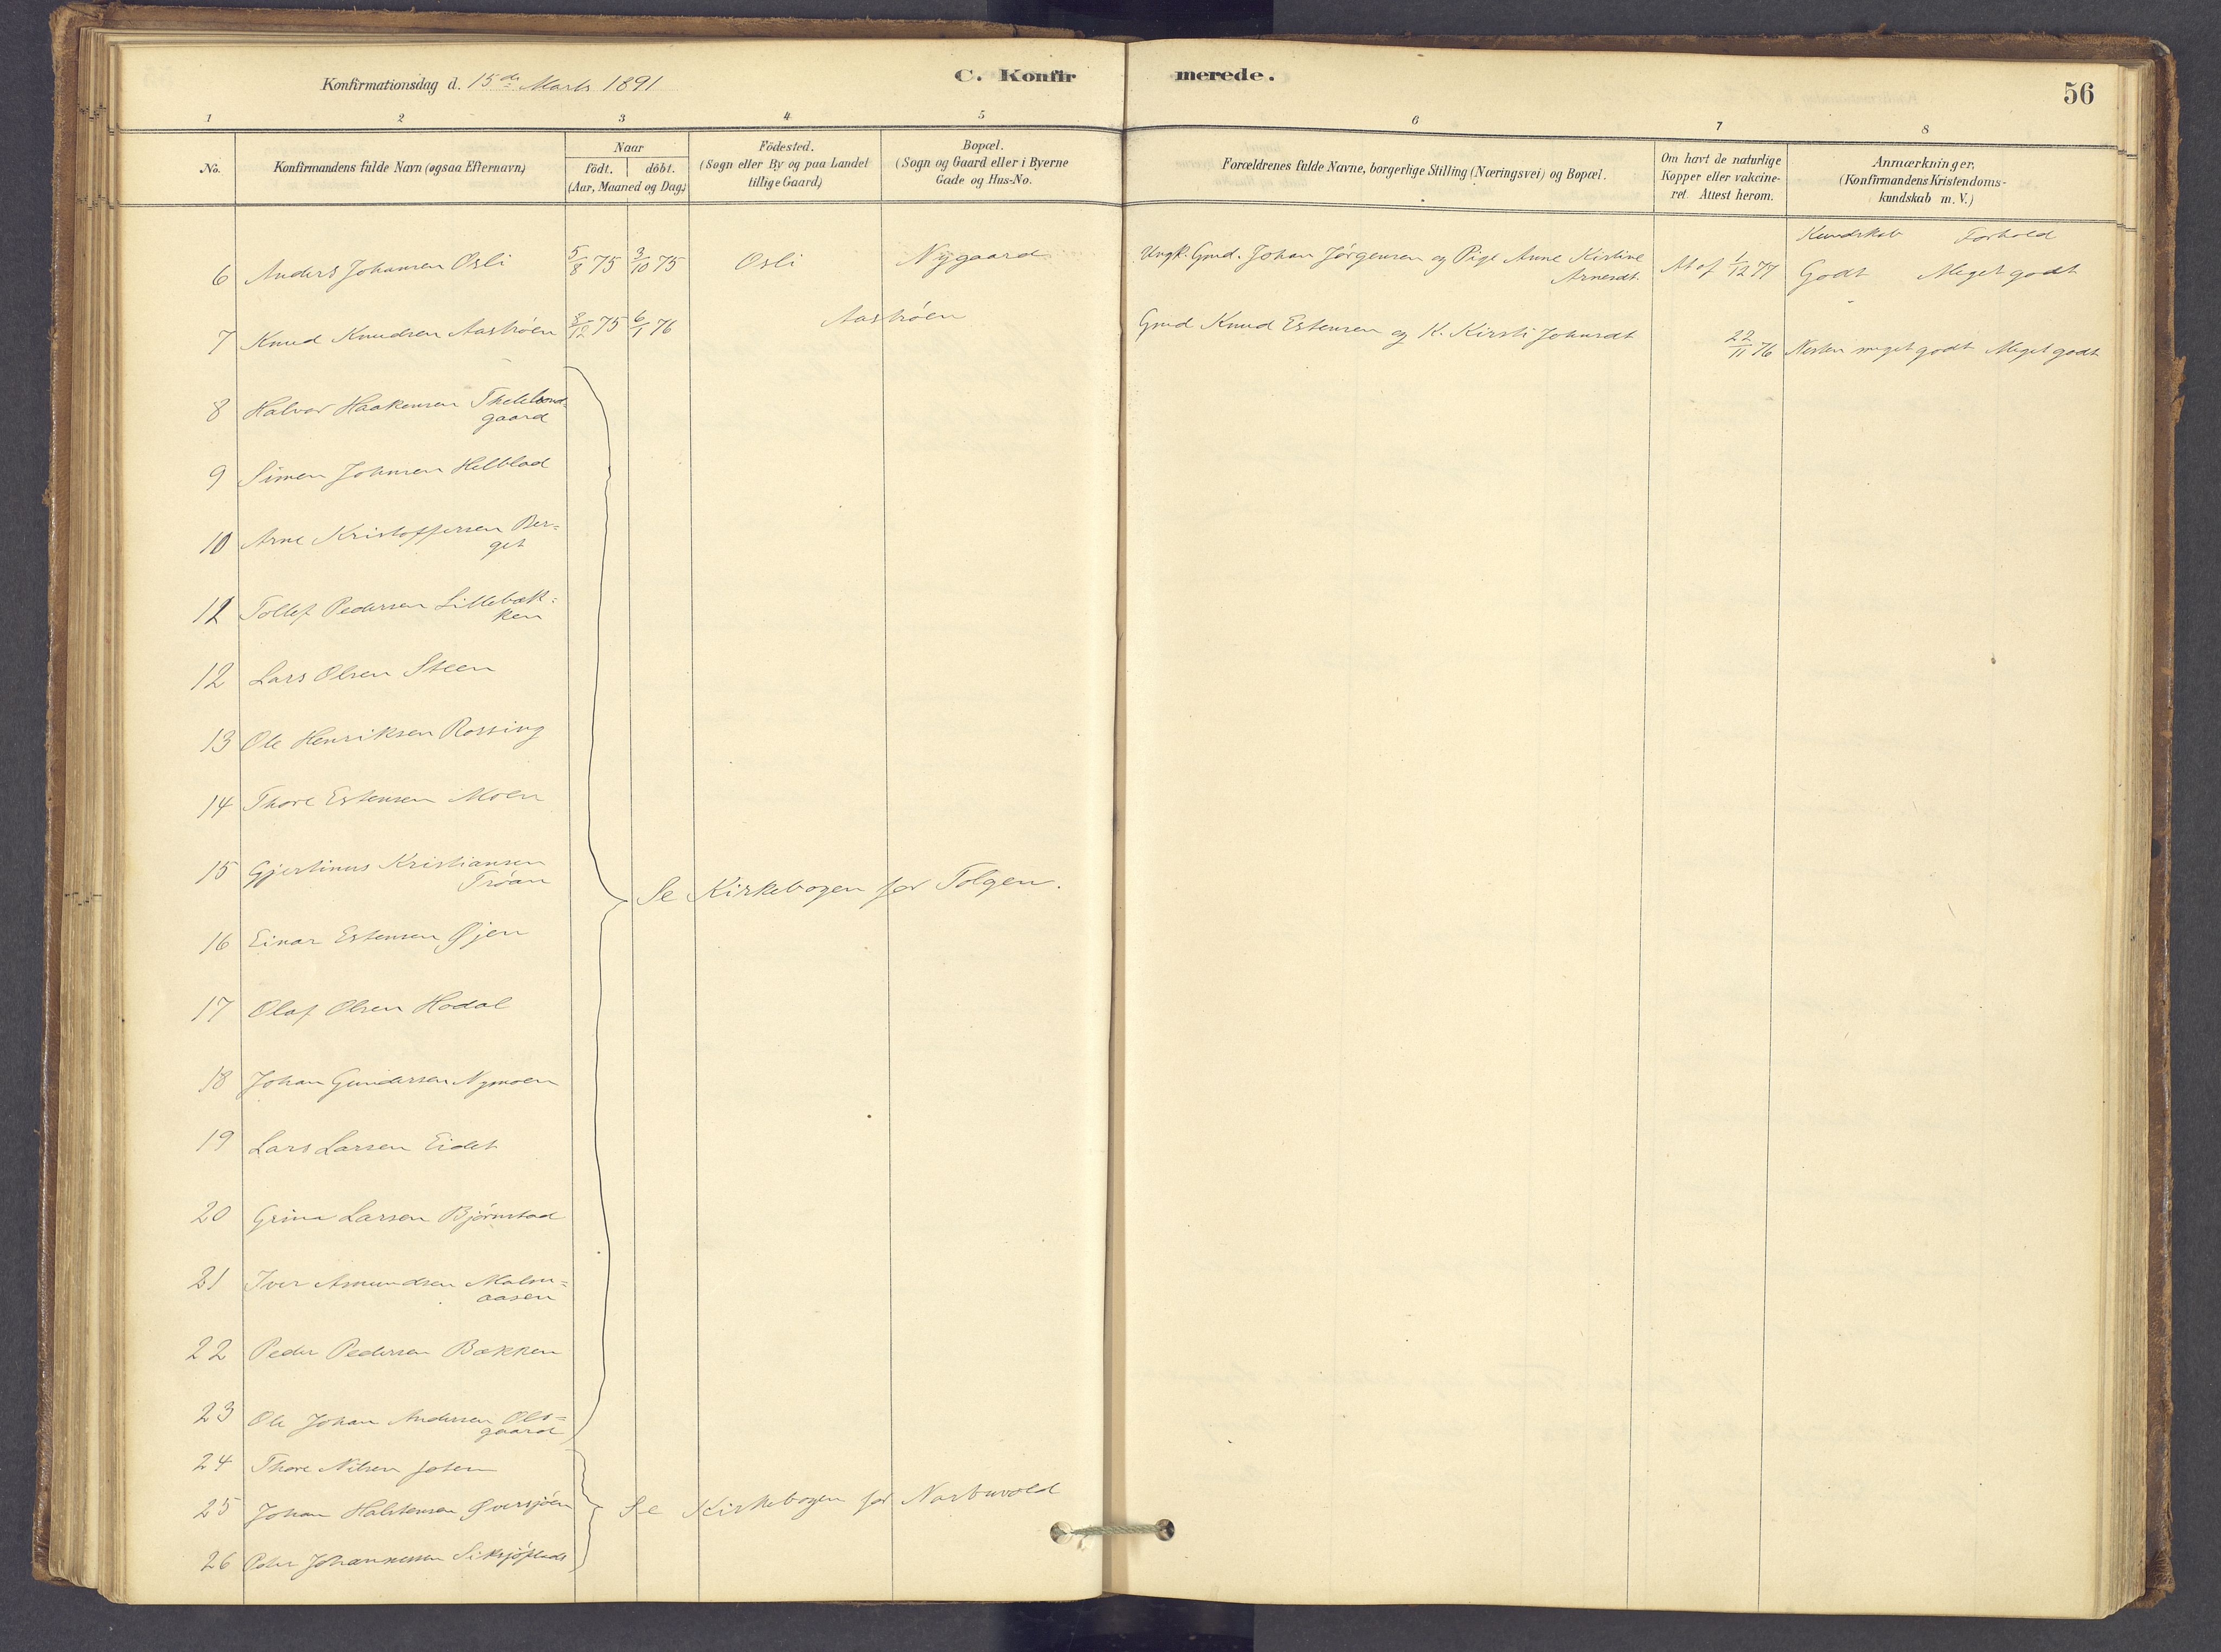 Konfirmationsdag d. 15de Marts 1891
C. Konfirmerede.
56
1 2 3 4 5 6 7 8
No.
Konfirmandens fulde Navn (ogsaa Efternavn)
Naar
födt. döbt.
(Aar, Maaned og Dag)
Födested.
(Sogn eller By og paa Landet
tillige Gaard)
Bopæl.
(Sogn og Gaard eller i Byerne
Gade og Hus-No.
Forældrenes fulde Navne, borgerlige Stilling (Næringsvei) og Bopæl.
Om havt de naturlige
Kopper eller vakcine-
ret. Attest herom.
Anmærkninger,
(Konfirmandens Kristendoms-
kundskab m. V.)
Kundskab Forhold
6 Anders Johansen Osli 5/8 75 3/10 75 Osli Nygaard Ungk. Gmd. Johan Jørgensen og Pige Anne Kirstine
Arnesdt. At af 1/12 77 Godt Meget godt
7 Knud Knudsen Aastrøen 8/12 75 6/1 76 Aastrøen Gmd Knud Estensen og K. Kirsti Johnsdt 22/11 76 Nesten meget godt Meget godt
8 Halvor Haakensen Thelebond-
gaard
9 Simen Johnsen Helblad
10 Arne Kristoffersen Ber=
get
12 Tollef Pedersen Lillebæk=
ken
12 Lars Olsen Steen
13 Ole Henriksen Rossing
14 Thore Estensen Moen
15 Gjertinus Kristiansen
Trøan
Se Kirkebogen for Tolgen.
16 Einar Estensen Øjen
17 Olaf Olsen Hodal
18 Johan Gundersen Nymoen
19 Lars Larsen Eidet
20 Grim Larsen Bjørnstad
21 Iver Amundsen Malm=
aasen
22 Peder Pedersen Bækken
23 Ole Johan Andersen Ols=
gaard
24 Thore Nilsen
25 Johan Halstensen Øversjøen Se Kirkebogen for Narbuvold
26 Peder Johannessen Siksjøplads